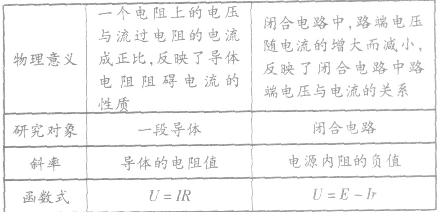 物理意义
一个电阻上的电压
与流过电阻的电流
成正比,反映了导体
电阻阻碍电流的
性质
闭合电路中,路端电压
随电流的增大而减小,
反映了闭合电路中路
端电压与电流的关系
研究对象 一段导体 闭合电路
斜率 导体的电阻值 电源内阻的负值
函数式 U=IR U=E-Ir